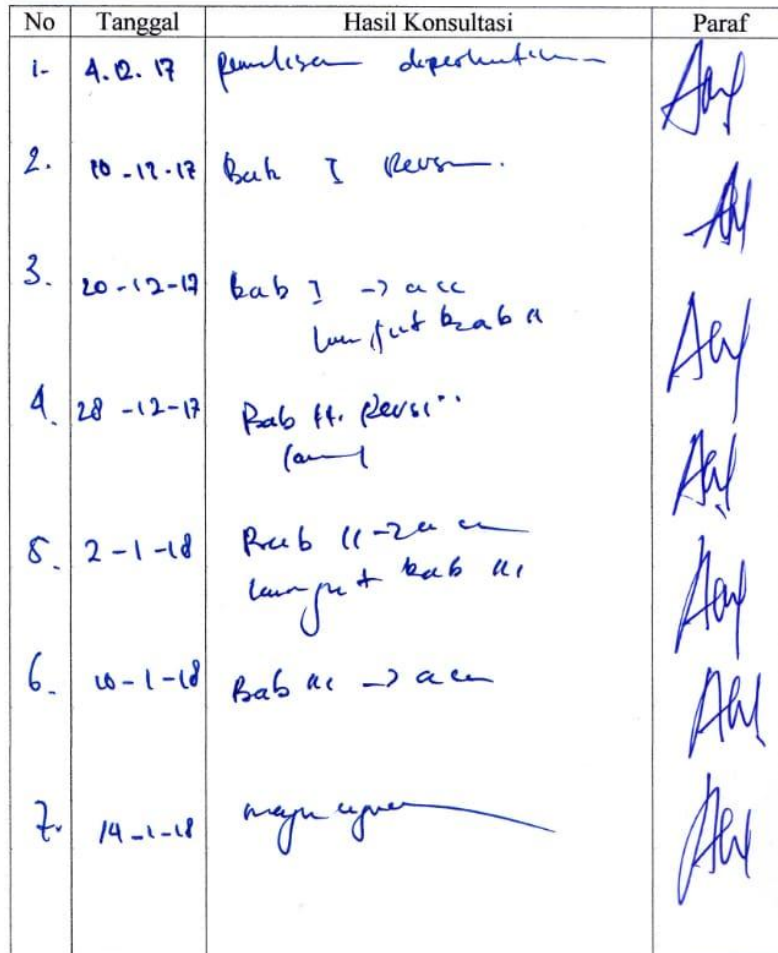 No Tanggal Hasil Konsultasi Paraf
1- 4.12.17 penulisan diperhatikan
2. 10-12-17 Bab I Revisi.
3. 20-12-17 bab I -> acc
lanjut bab II
4. 28-12-17 Bab II. Revisi
5. 2-1-18 Bab II -> acc
lanjut bab III
6. 10-1-18 Bab III -> acc
7. 14-1-18 maju ujian